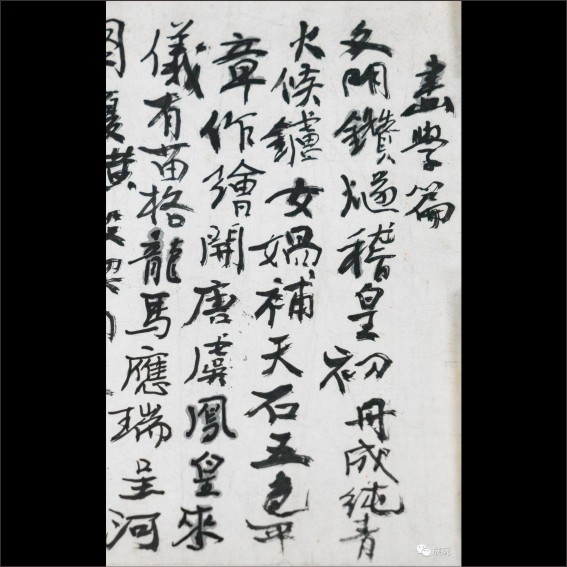 畫學篇
文明鑽燧稽皇初丹成純青
火候鑪女媧補天石五色平
章作繪開唐虞鳳皇來
儀有苗格龍馬應瑞呈河
圖夏